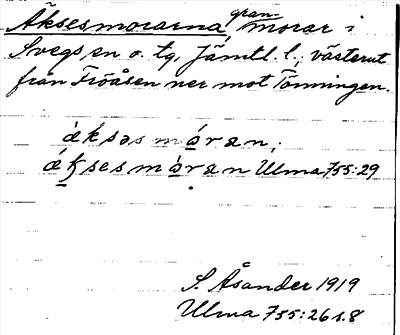 Äksesmorarna, gran-
morar i
Svegs sn o. tg, Jämtl. l., västerut
från Fröåsen ner mot Tönningen.
áksəsmòran;
áksesmòran Ulma 755:29
S. Åsander 1919
Ulma 755:26 s. 8